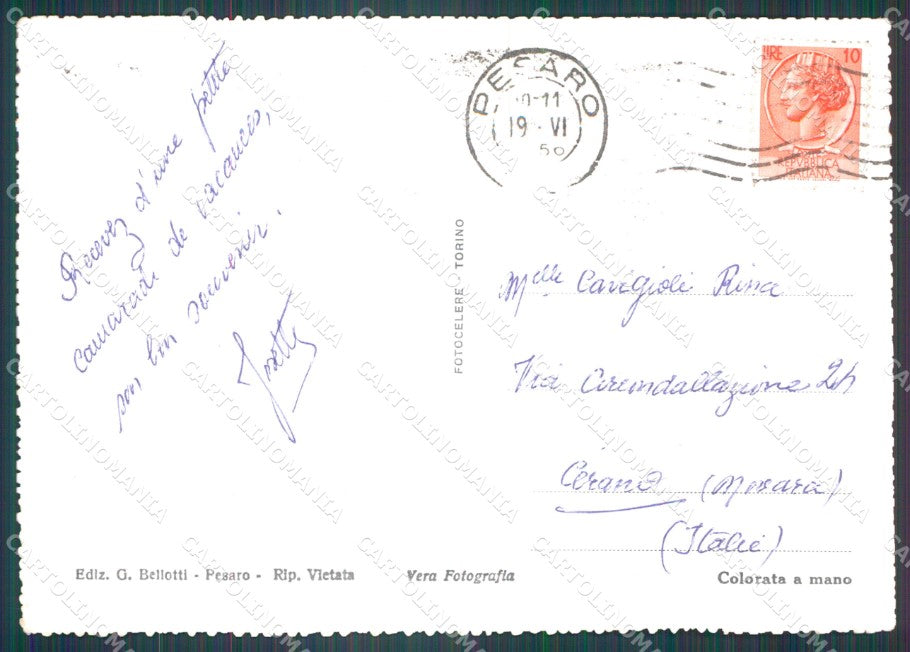 Recevez d'une petite
camarade de vacances,
son bon souvenir.
Josette
PESARO
10-11
19 · VI
58
LIRE 10
REPVBBLICA
ITALIANA
FOTOCELERE · TORINO
Mlle Carigioli Rina
Via Circondallazione 24
Cerano (Novara)
(Italie)
Ediz. G. Bellotti - Pesaro - Rip. Vietata
Vera Fotografia
Colorata a mano
CARTOLINOMANIA